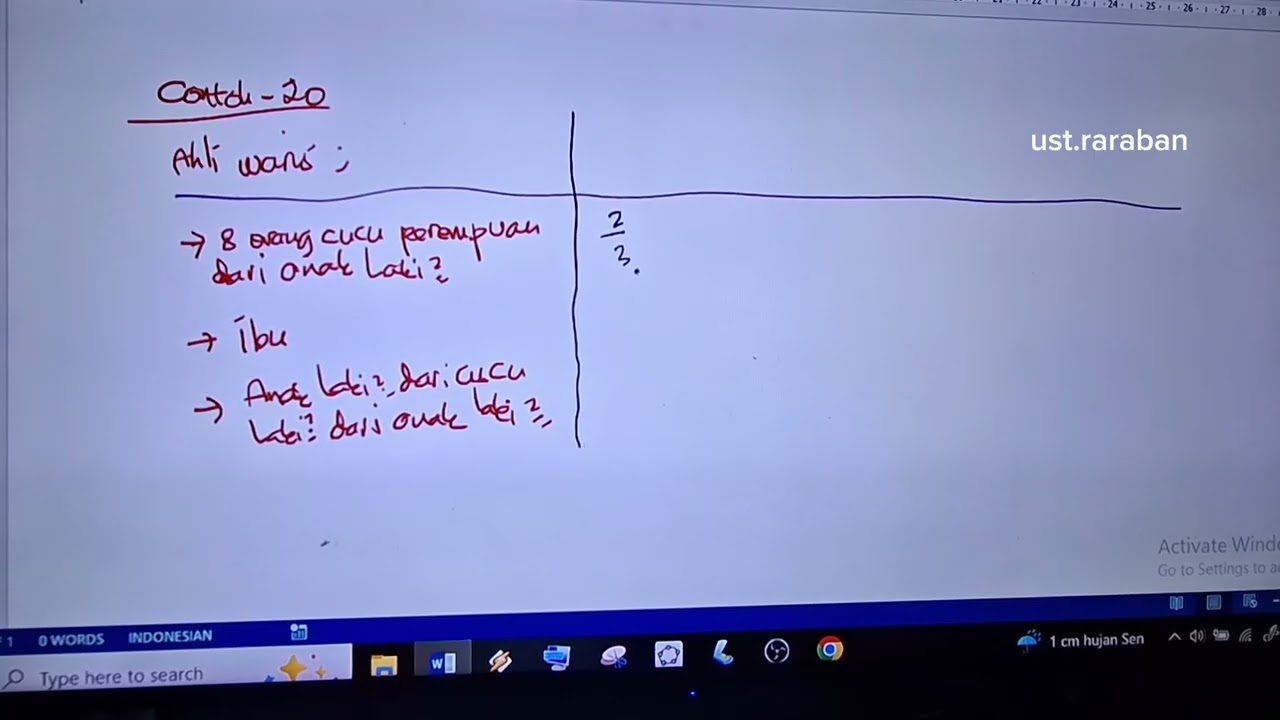 22 23 24 25 26 27 28
Contoh-20
ust.raraban
Ahli waris ;
→ 8 orang cucu perempuan
dari anak laki2
2
3
→ Ibu
→ Anak laki2 dari cucu
laki2 dari anak laki2
Activate Wind
Go to Settings to a
1 0 WORDS INDONESIAN
Type here to search
1 cm hujan Sen